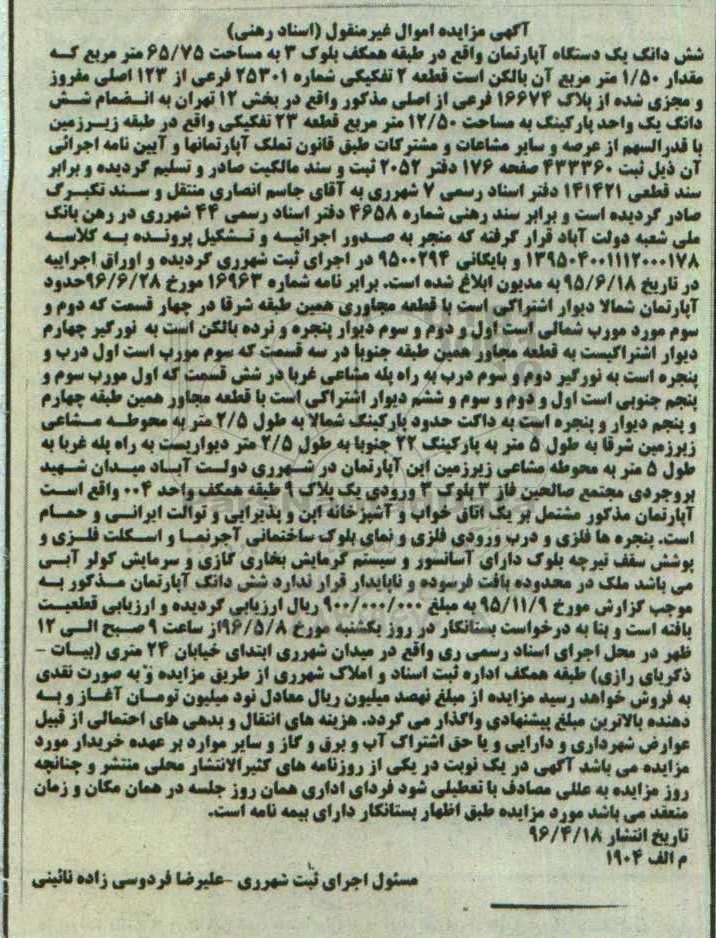 آگهی مزایده اموال غیرمنقول (اسناد رهنی)
شش دانگ یک دستگاه آپارتمان واقع در طبقه همکف بلوک ۳ به مساحت ۶۵/۷۵ متر مربع که
مقدار ۱/۵۰ متر مربع آن بالکن است قطعه ۲ تفکیکی شماره ۲۵۳۰۱ فرعی از ۱۲۳ اصلی مفروز
و مجزی شده از پلاک ۱۶۶۷۴ فرعی از اصلی مذکور واقع در بخش ۱۲ تهران به انضمام شش
دانگ یک واحد پارکینگ به مساحت ۱۲/۵۰ متر مربع قطعه ۲۳ تفکیکی واقع در طبقه زیرزمین
با قدرالسهم از عرصه و سایر مشاعات و مشترکات طبق قانون تملک آپارتمانها و آیین نامه اجرائی
آن ذیل ثبت ۴۳۳۳۶۰ صفحه ۱۷۶ دفتر ۲۰۵۲ ثبت و سند مالکیت صادر و تسلیم گردیده و برابر
سند قطعی ۱۴۱۴۲۱ دفتر اسناد رسمی ۷ شهرری به آقای جاسم انصاری منتقل و سند تکبرگ
صادر گردیده است و برابر سند رهنی شماره ۴۶۵۸ دفتر اسناد رسمی ۴۴ شهرری در رهن بانک
ملی شعبه دولت آباد قرار گرفته که منجر به صدور اجرائیه و تشکیل پرونده به کلاسه
۱۳۹۵۰۴۰۰۱۱۱۲۰۰۰۱۷۸ و بایگانی ۹۵۰۰۲۹۴ در اجرای ثبت شهرری گردیده و اوراق اجراییه
در تاریخ ۹۵/۶/۱۸ به مدیون ابلاغ شده است. برابر نامه شماره ۱۶۹۶۳ مورخ ۹۶/۶/۲۸حدود
آپارتمان شمالا دیوار اشتراکی است با قطعه مجاوری همین طبقه شرقا در چهار قسمت که دوم و
سوم مورد مورب شمالی است اول و دوم و سوم دیوار پنجره و نرده بالکن است به نورگیر چهارم
دیوار اشتراکیست به قطعه مجاور همین طبقه جنوبا در سه قسمت که سوم مورب است اول درب و
پنجره است به نورگیر دوم و سوم درب به راه پله مشاعی غربا در شش قسمت که اول مورب سوم و
پنجم جنوبی است اول و دوم و سوم و ششم دیوار اشتراکی است با قطعه مجاور همین طبقه چهارم
و پنجم دیوار و پنجره است به داکت حدود پارکینگ شمالا به طول ۲/۵ متر به محوطه مشاعی
زیرزمین شرقا به طول ۵ متر به پارکینگ ۲۲ جنوبا به طول ۲/۵ متر دیواریست به راه پله غربا به
طول ۵ متر به محوطه مشاعی زیرزمین این آپارتمان در شهرری دولت آباد میدان شهید
بروجردی مجتمع صالحین فاز ۳ بلوک ۳ ورودی یک پلاک ۹ طبقه همکف واحد ۰۰۴ واقع است
آپارتمان مذکور مشتمل بر یک اتاق خواب و آشپزخانه اپن و پذیرایی و توالت ایرانی و حمام
است. پنجره ها فلزی و درب ورودی فلزی و نمای بلوک ساختمانی آجرنما و اسکلت فلزی و
پوشش سقف تیرچه بلوک دارای آسانسور و سیستم گرمایش بخاری گازی و سرمایش کولر آبی
می باشد ملک در محدوده بافت فرسوده و ناپایدار قرار ندارد شش دانگ آپارتمان مذکور به
موجب گزارش مورخ ۹۵/۱۱/۹ به مبلغ ۹۰۰/۰۰۰/۰۰۰ ریال ارزیابی گردیده و ارزیابی قطعیت
یافته است و بنا به درخواست بستانکار در روز یکشنبه مورخ ۹۶/۵/۸از ساعت ۹ صبح الی ۱۲
ظهر در محل اجرای اسناد رسمی ری واقع در میدان شهرری ابتدای خیابان ۲۴ متری (بیات -
ذکریای رازی) طبقه همکف اداره ثبت اسناد و املاک شهرری از طریق مزایده و به صورت نقدی
به فروش خواهد رسید مزایده از مبلغ نهصد میلیون ریال معادل نود میلیون تومان آغاز و به
دهنده بالاترین مبلغ پیشنهادی واگذار می گردد. هزینه های انتقال و بدهی های احتمالی از قبیل
عوارض شهرداری و دارایی و یا حق اشتراک آب و برق و گاز و سایر موارد بر عهده خریدار مورد
مزایده می باشد آگهی در یک نوبت در یکی از روزنامه های کثیرالانتشار محلی منتشر و چنانچه
روز مزایده به عللی مصادف با تعطیلی شود فردای اداری همان روز جلسه در همان مکان و زمان
منعقد می باشد مورد مزایده طبق اظهار بستانکار دارای بیمه نامه است.
تاریخ انتشار ۹۶/۴/۱۸
م الف ۱۹۰۴
مسئول اجرای ثبت شهرری -علیرضا فردوسی زاده نائینی